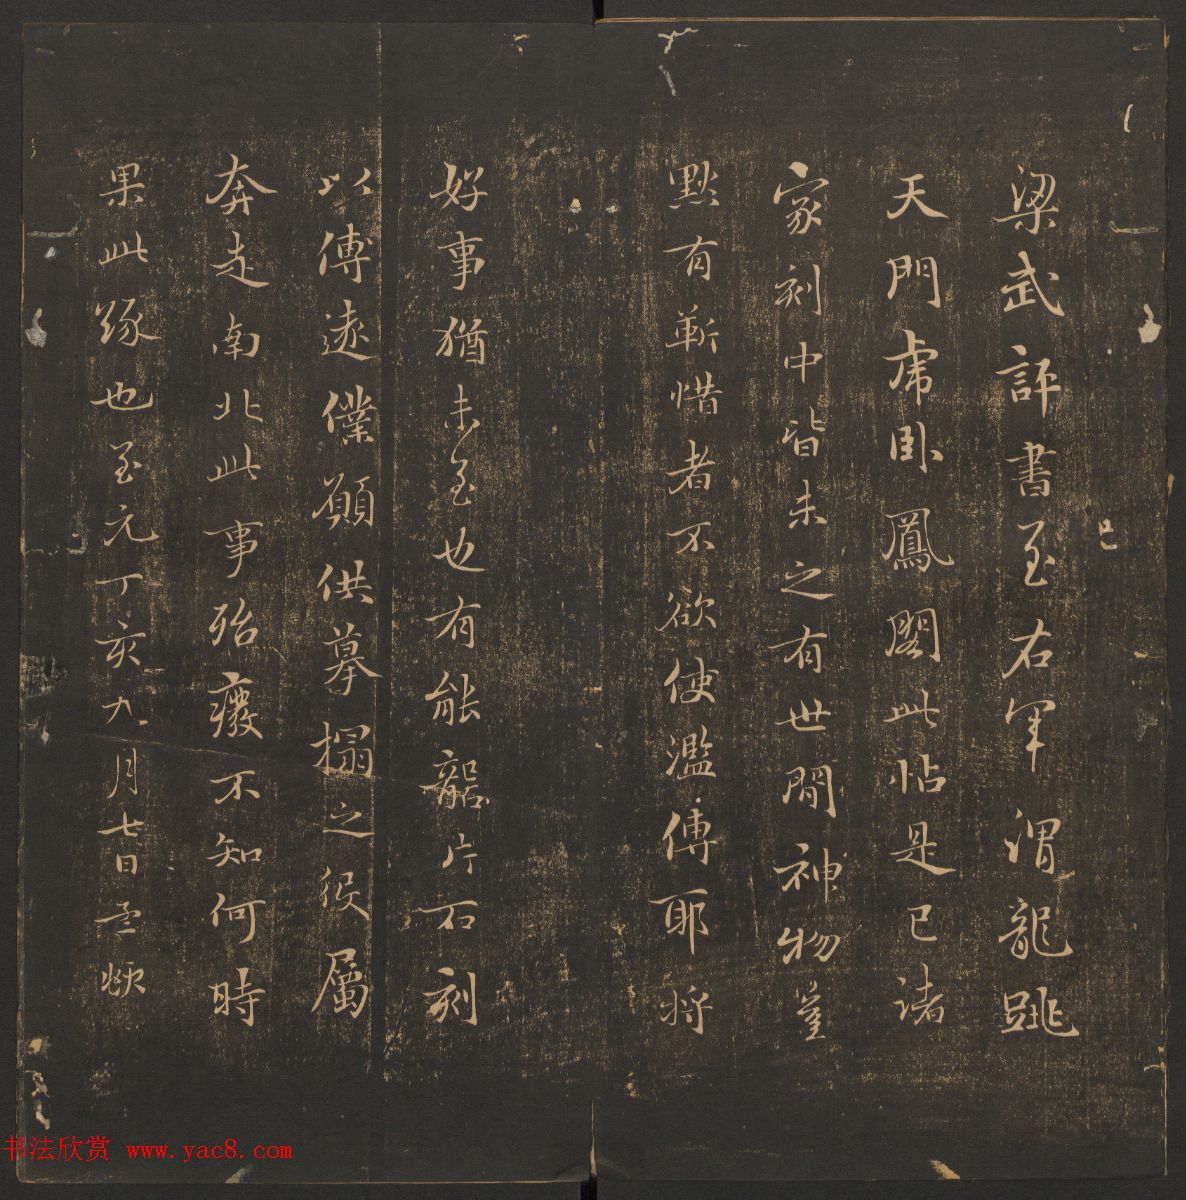 梁武評書至右軍謂龍跳
天門虎臥鳳閣此帖是已諸
家刻中皆未之有世間神物豈
默有蘄惜者不欲使濫傳耶將
好事猶未至也有能礱片石刻
以傳遠僕願供摹搨之役屬
奔走南北此事殆癈不知何時
果此緣也至元丁亥九月七日孟頫
书法欣赏 www.yac8.com